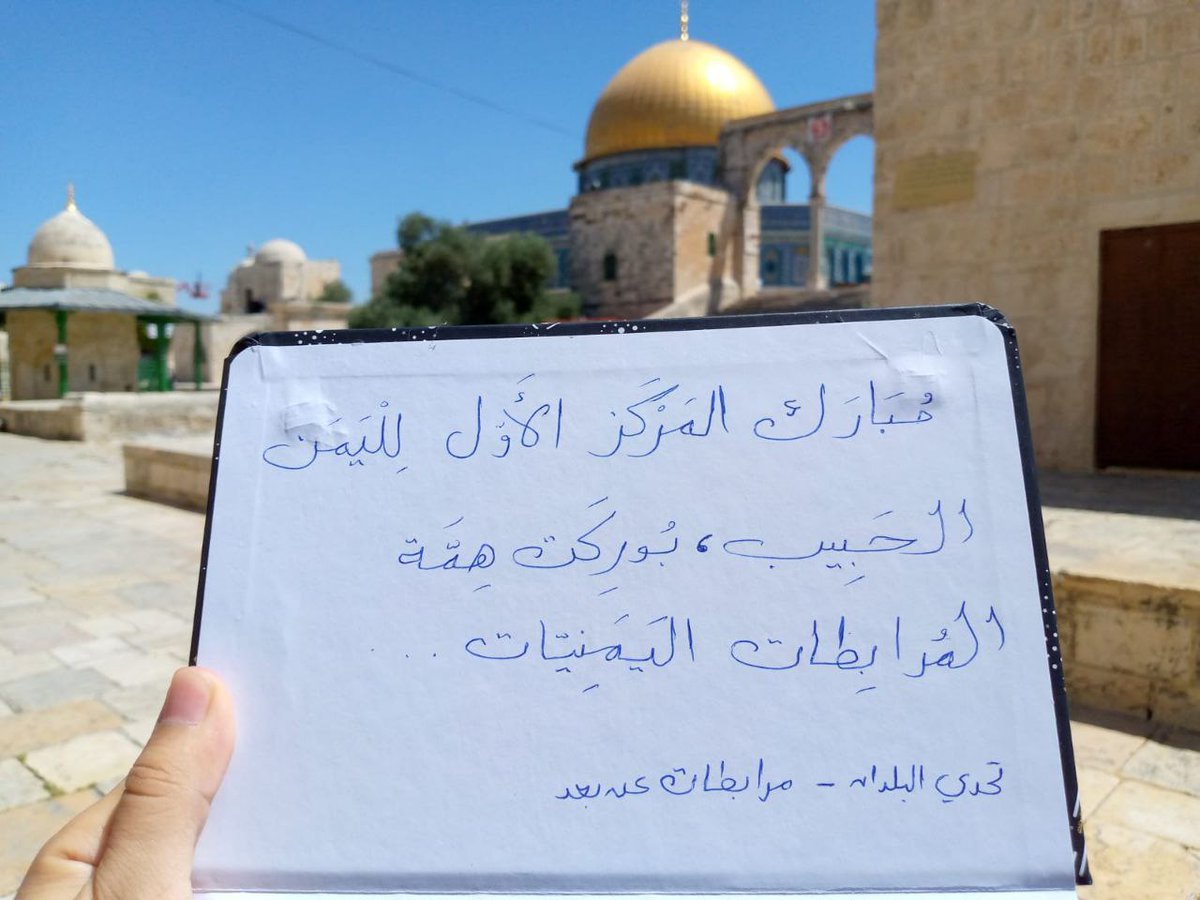 مُبَارَك المَرْكَز الأَوّل لِلْيَمَن
الحَبِيب، بُورِكَت هِمَّة
المُرابِطات اليَمَنِيّات ...
تحدي البلدان - مرابطات عن بعد